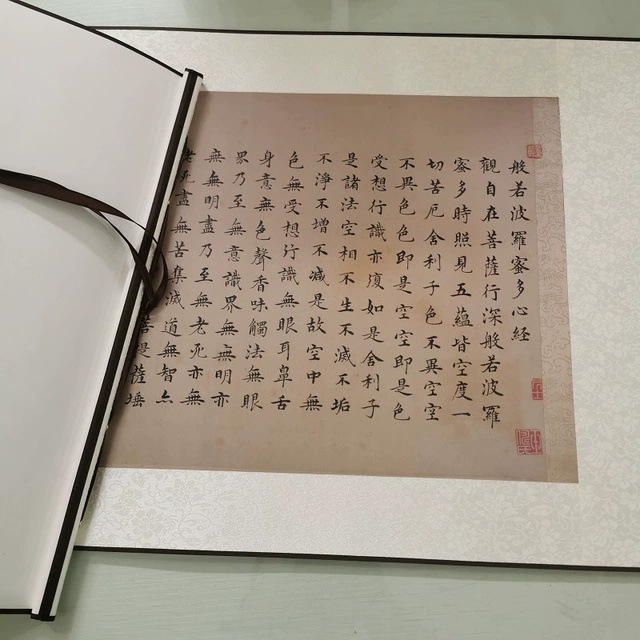 般若波羅蜜多心経
觀自在菩薩行深般若波羅
蜜多時照見五蘊皆空度一
切苦厄舍利子色不異空空
不異色色即是空空即是色
受想行識亦復如是舍利子
是諸法空相不生不滅不垢
不淨不增不減是故空中無
色無受想行識無眼耳鼻舌
身意無色聲香味觸法無眼
界乃至無意識界無無明亦
無無明盡乃至無老死亦無
老死盡無苦集滅道無智亦
菩提薩埵